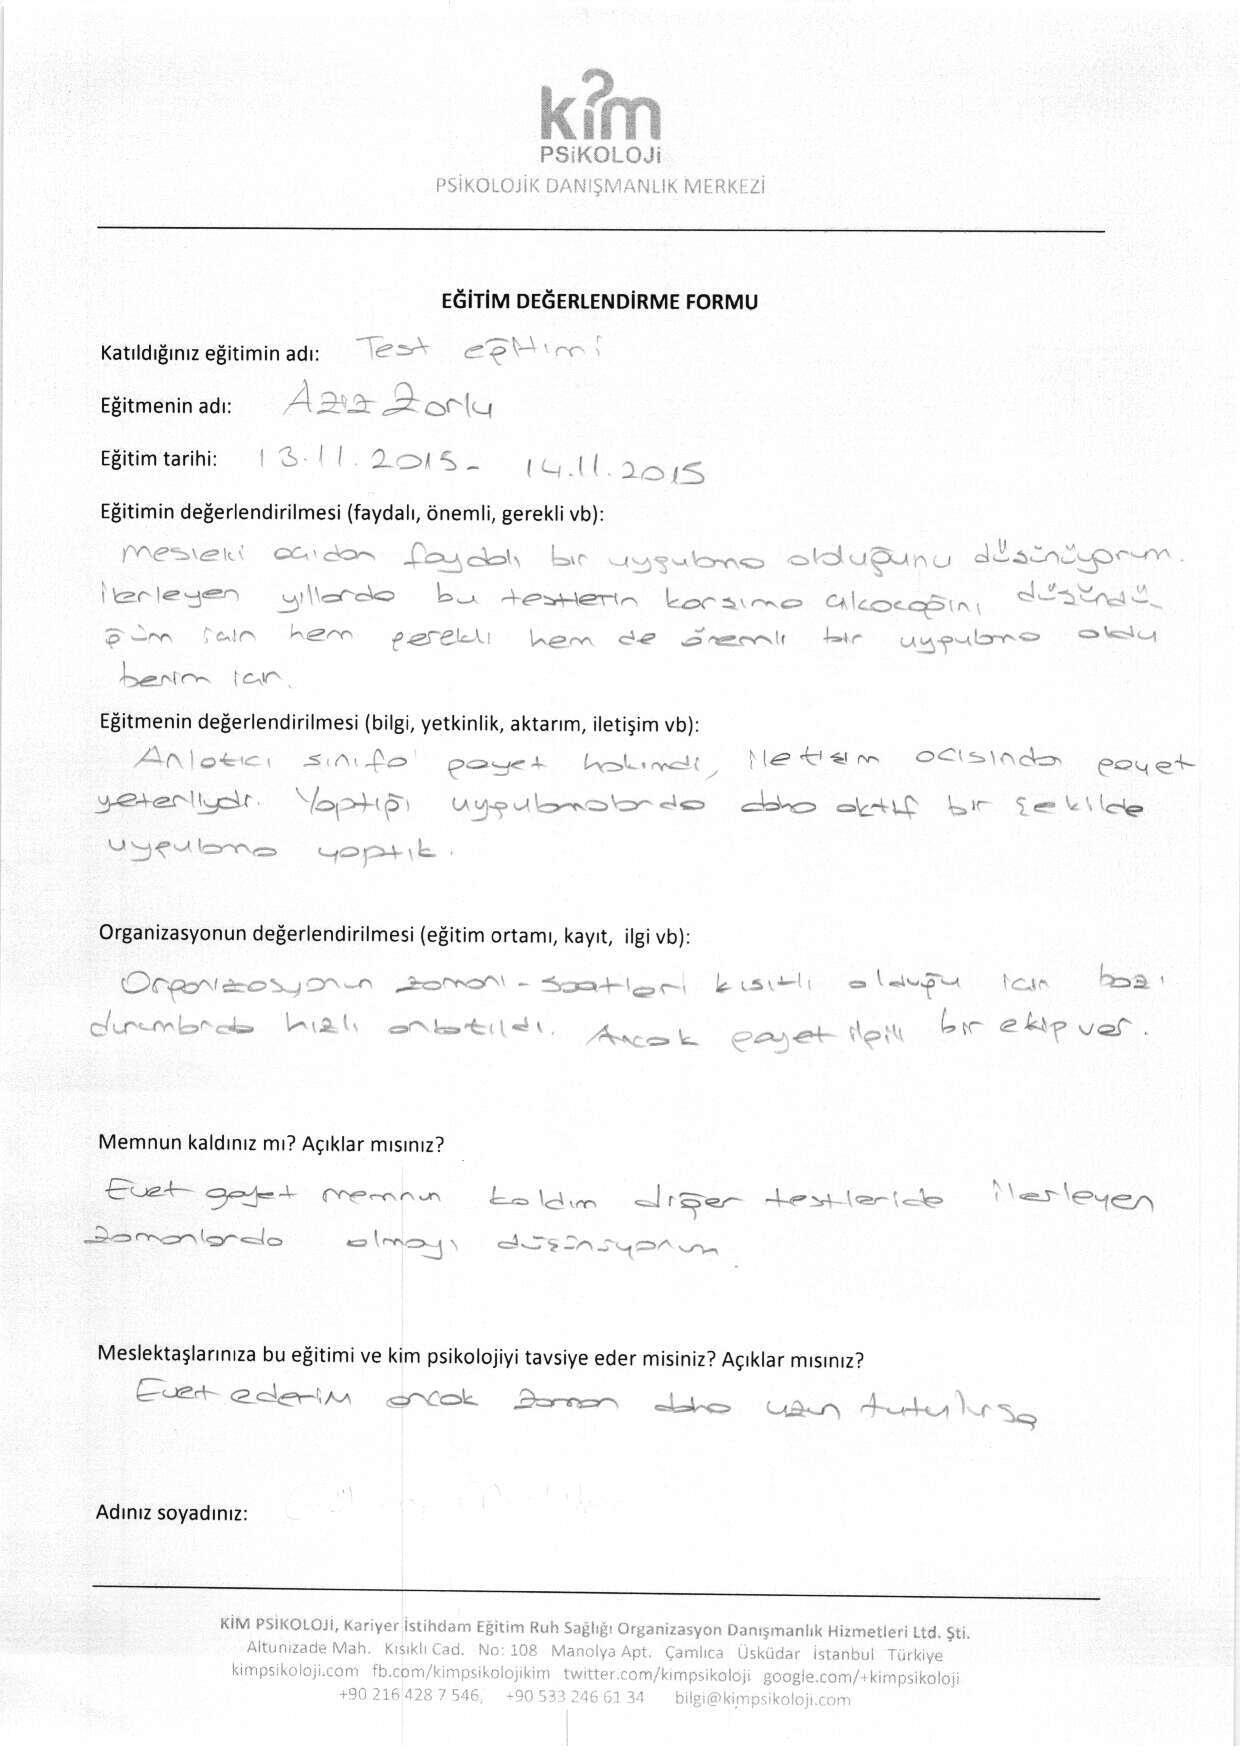 kim
PSiKOLOJi
PSİKOLOJİK DANIŞMANLIK MERKEZİ
EĞİTİM DEĞERLENDİRME FORMU
Katıldığınız eğitimin adı: Test eğitimi
Eğitmenin adı: Aziz Zorlu
Eğitim tarihi: 13.11.2015- 14.11.2015
Eğitimin değerlendirilmesi (faydalı, önemli, gerekli vb):
Mesleki acıdan faydalı bir uygulama olduğunu düşünüyorum.
İlerleyen yıllarda bu testlerin karsıma cıkacağını düşündü-
ğüm icin hem gerekli hem de önemli bir uygulama oldu
benim icin.
Eğitmenin değerlendirilmesi (bilgi, yetkinlik, aktarım, iletişim vb):
Anlatıcı sınıfa gayet hakimdi, İletisim acısından gayet
yeterliydi. Yaptığı uygulamalarda daha aktif bir şekilde
uygulama yaptık.
Organizasyonun değerlendirilmesi (eğitim ortamı, kayıt, ilgi vb):
Organizasyonun zamanı - saatleri kısıtlı olduğu icin bazı
durumlarda hızlı anlatıldı. Ancak gayet ilgili bir ekip var.
Memnun kaldınız mı? Açıklar mısınız?
Evet gayet memnun kaldım diğer testleride ilerleyen
zamanlarda almayı düşünüyorum
Meslektaşlarınıza bu eğitimi ve kim psikolojiyi tavsiye eder misiniz? Açıklar mısınız?
Evet ederim ancak zaman daha uzun tutulursa
Adınız soyadınız:
KİM PSİKOLOJİ, Kariyer İstihdam Eğitim Ruh Sağlığı Organizasyon Danışmanlık Hizmetleri Ltd. Şti.
Altunizade Mah. Kısıklı Cad. No: 108 Manolya Apt. Çamlıca Üsküdar İstanbul Türkiye
kimpsikoloji.com fb.com/kimpsikolojikim twitter.com/kimpsikoloji google.com/+kimpsikoloji
+90 216 428 7 546, +90 533 246 61 34 bilgi@kimpsikoloji.com